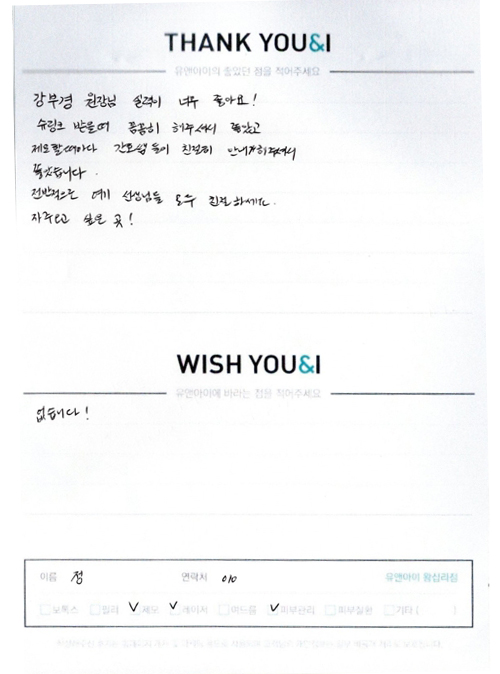 THANK YOU&I
유앤아이의 좋았던 점을 적어주세요
강부경 원장님 실력이 너무 좋아요!
슈링크 받을때 꼼꼼히 해주셔서 좋았고
제모할때마다 간호쌤들이 친절히 안내해주셔서
좋았습니다.
전반적으로 여기 선생님들 모두 친절하세요.
자주오고 싶은 곳!
WISH YOU&I
유앤아이에 바라는 점을 적어주세요
없습니다!
이름 정 연락처 010 유앤아이 왕십리점
보톡스 필러 제모 레이저 여드름 피부관리 피부질환 기타 ( )